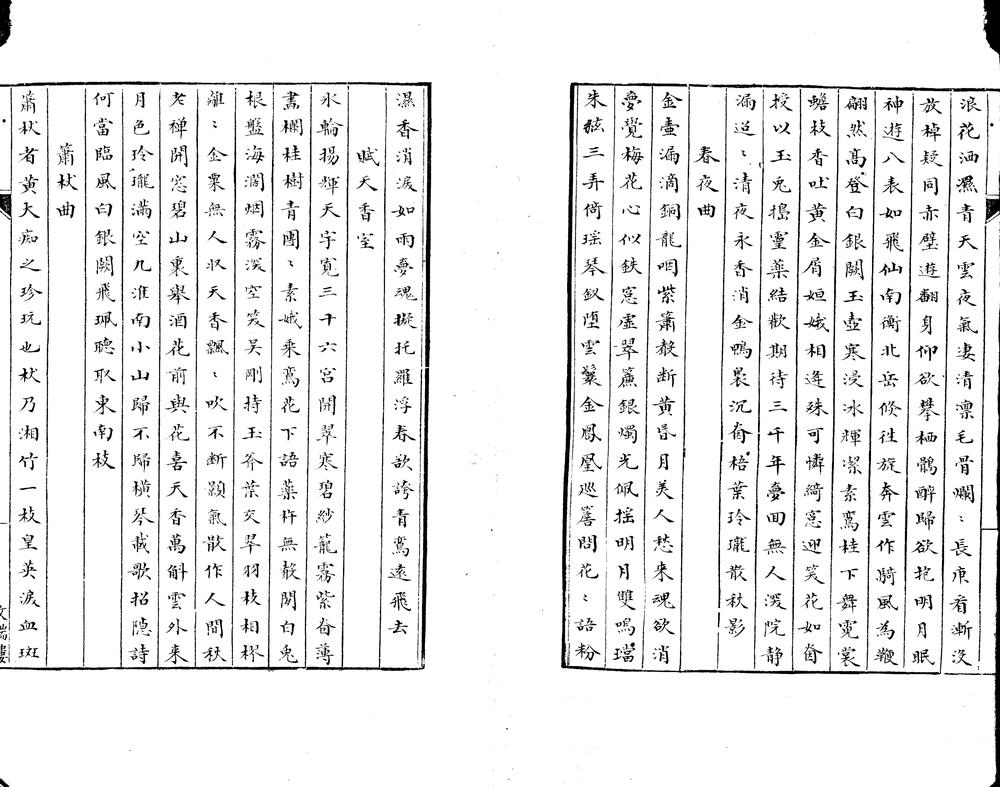 浪花洒濕青天雲夜氣凄清凛毛骨爛〻長庚看漸沒
放棹疑同赤壁遊翻身仰欲攀栖鶻醉歸欲抱明月眠
神遊八表如飛仙南衡北岳倏往旋奔雲作騎風為鞭
翩然髙登白銀闕玉壺寒浸冰輝潔素鸞桂下舞霓裳
蟾枝香吐黄金屑姮娥相逢殊可憐綺窓迎笑花如𦕈
授以玉兎搗霊藥結歡期待三千年夢回無人深院静
漏迢〻清夜永香消金鴨裊沉烟梧葉玲瓏散秋影
春夜曲
金壷漏滴銅龍咽紫簫聲断黄昏月美人愁来魂欲消
夢覺梅花心似鉄窓虚翠簾銀燭光佩揺明月雙鳴璫
朱絃三弄倚瑶琴釵堕雲鬟金鳳凰巡簷問花〻語粉
濕香消淚如雨夢魂擬托羅浮春欲誇青鸞遠飛去
賦天香室
氷輪揚輝天宇寛三十六宮開翠寒碧紗籠霧紫烟薄
畫欄桂樹青團〻素娥乘鸞花下語藥杵無聲閑白兎
根盤海濶烟霧深空笑吴剛持玉斧葉交翠羽枝相樛
離〻金粟無人収天香飄〻吹不断顥氣散作人間秋
老禅開窓碧山裏舉酒花前與花喜天香萬斛雲外来
月色玲瓏滿空几淮南小山歸不歸横琴載歌招隐詩
何當臨風白銀闕飛珮聴取東南枝
簫杖曲
簫杖者黄大痴之珍玩也杖乃湘竹一枝皇英淚血斑
文瑞樓